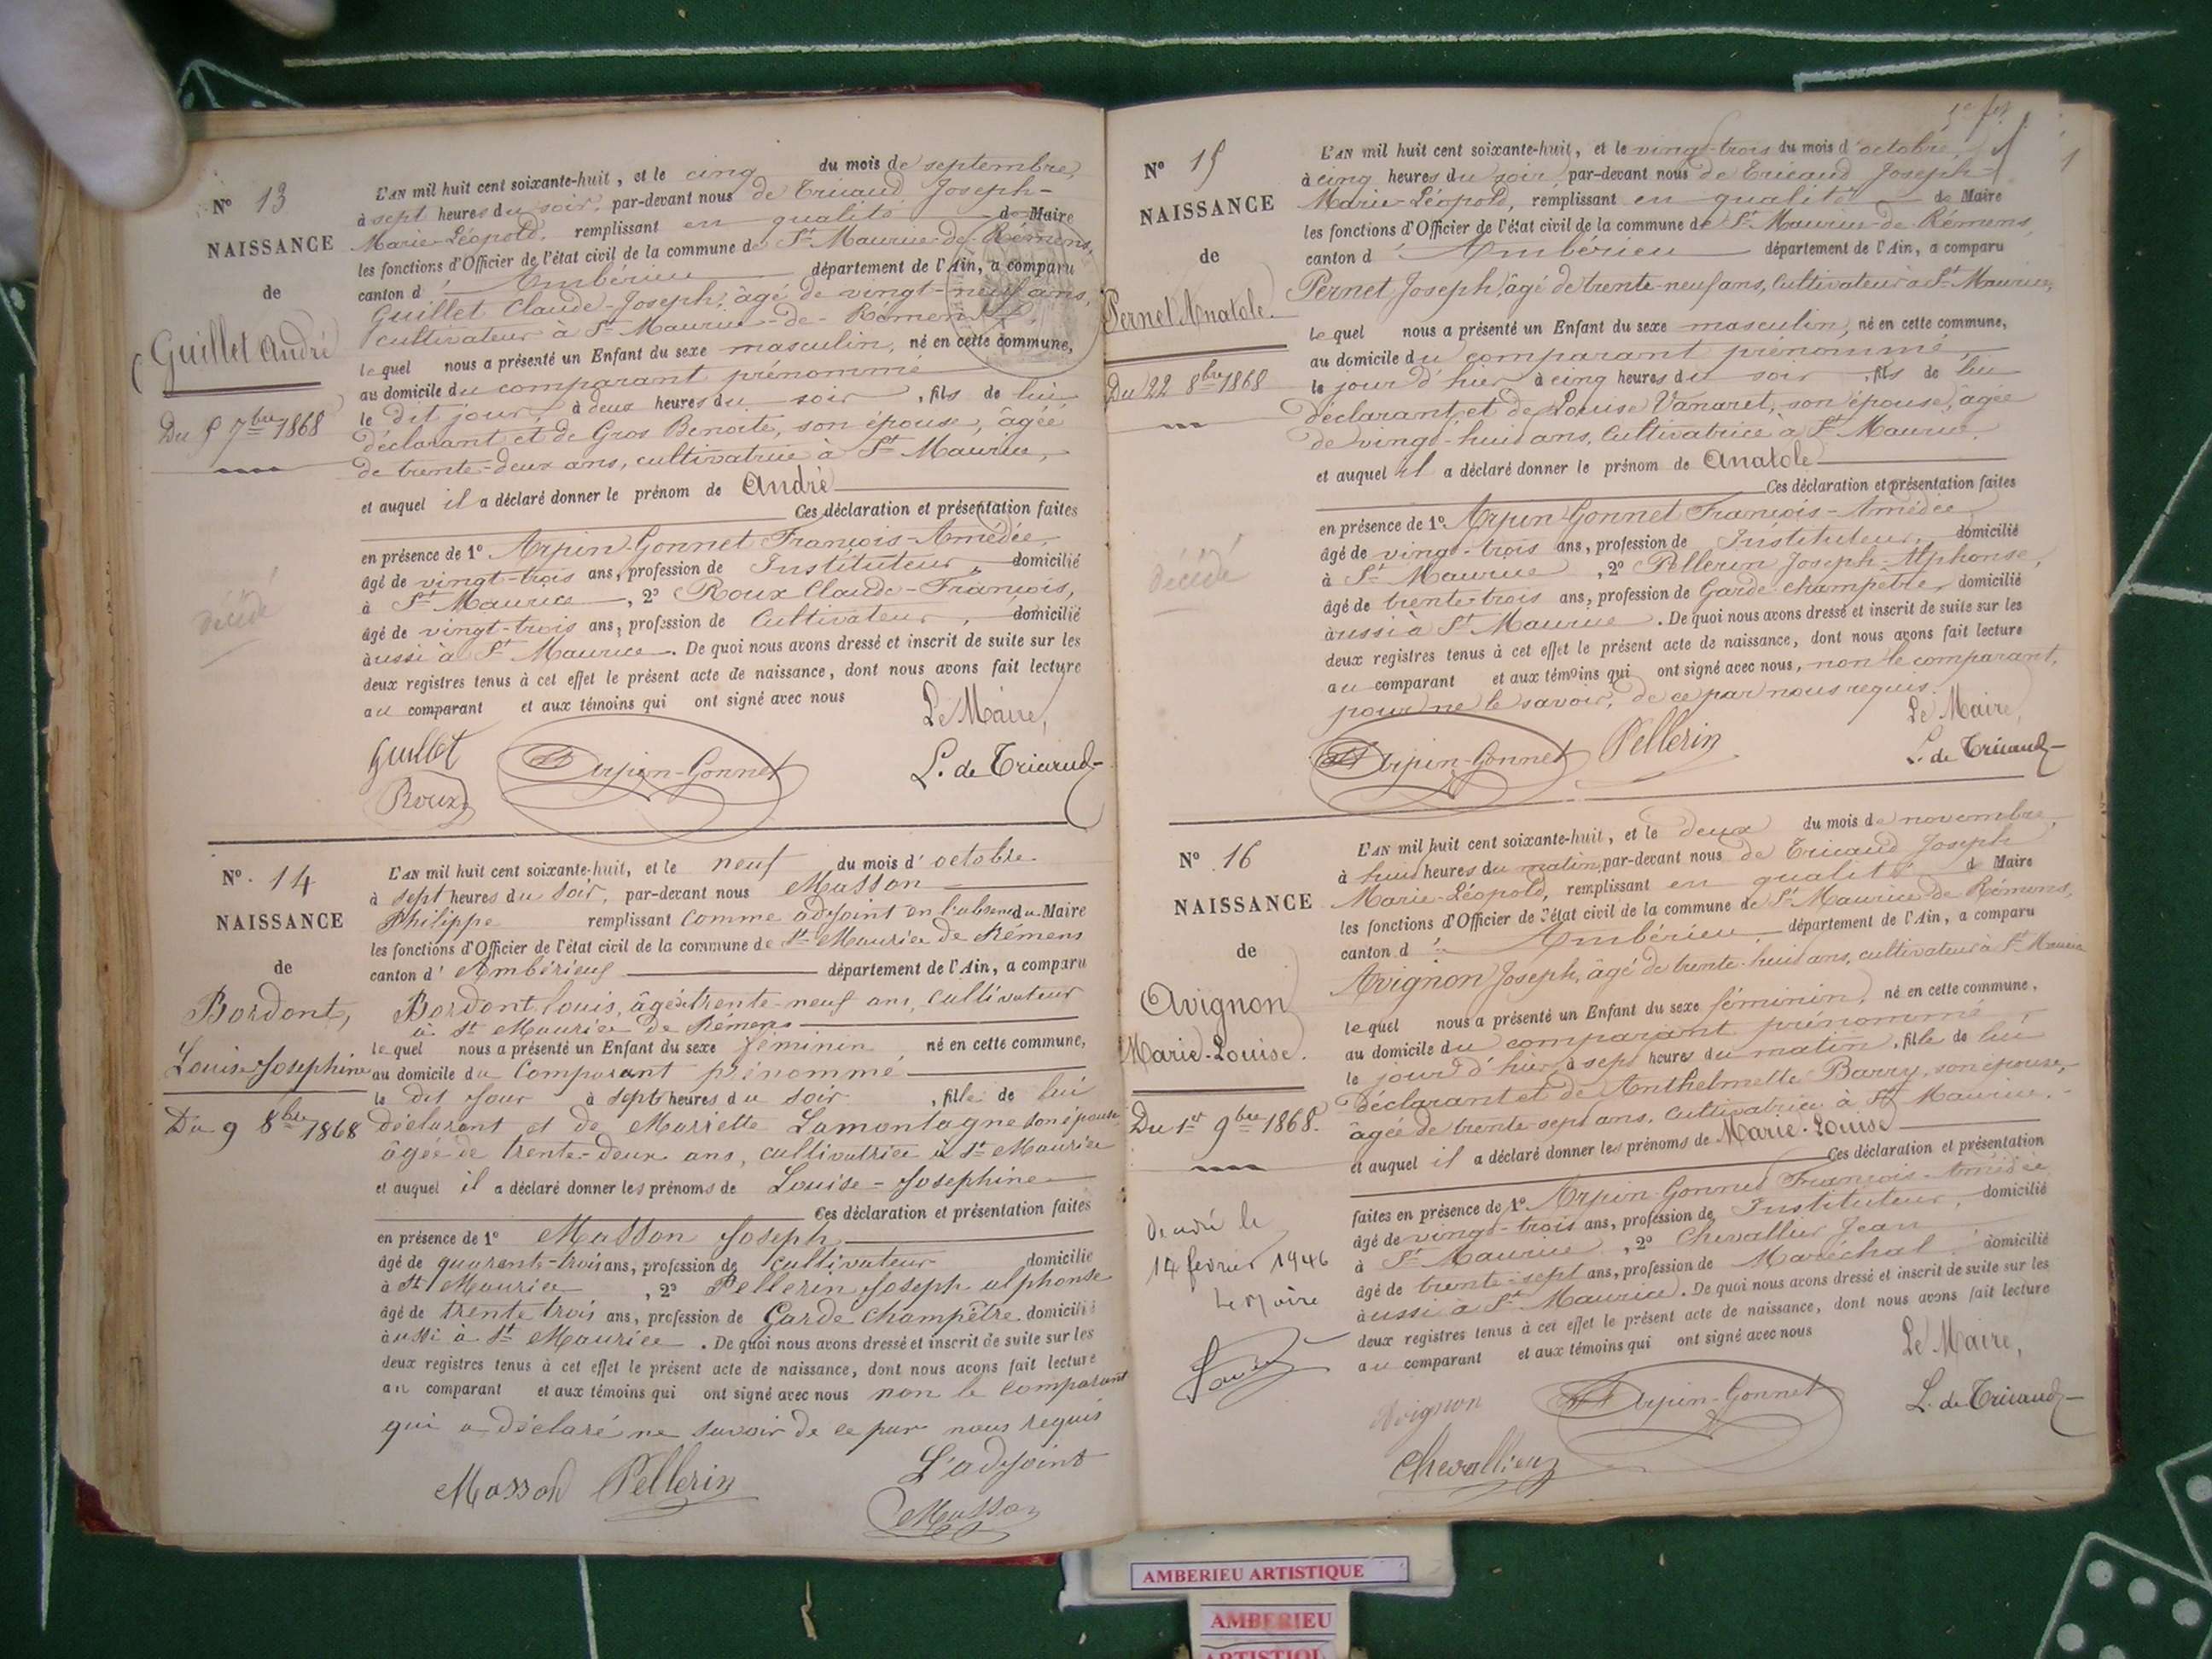 N° 13
NAISSANCE
de
Guillet André
Du 5 7bre 1868
décédé
L'AN mil huit cent soixante-huit, et le cinq du mois de septembre,
à sept heures du soir, par-devant nous de Tricaud Joseph-
Marie-Léopold, remplissant en qualité de Maire
les fonctions d'Officier de l'état civil de la commune de St Maurice-de-Rémens,
canton d'Ambérieu département de l'Ain, a comparu
Guillet Claude-Joseph, âgé de vingt-neuf ans,
cultivateur à St Maurice-de-Rémens,
lequel nous a présenté un Enfant du sexe masculin, né en cette commune,
au domicile du comparant prénommé
le dit jour, à deux heures du soir, fils de lui
déclarant et de Gros Benoite, son épouse, âgée
de trente-deux ans, cultivatrice à St Maurice,
et auquel il a déclaré donner le prénom de André
Ces déclaration et présentation faites
en présence de 1° Arpin-Gonnet François-Amédée,
âgé de vingt-trois ans, profession de Instituteur, domicilié
à St Maurice, 2° Roux Claude-François,
âgé de vingt-trois ans, profession de Cultivateur, domicilié
aussi à St Maurice. De quoi nous avons dressé et inscrit de suite sur les
deux registres tenus à cet effet le présent acte de naissance, dont nous avons fait lecture
au comparant et aux témoins qui ont signé avec nous
Le Maire,
Guillet Arpin-Gonnet L. de Tricaud
Roux
N° 14
NAISSANCE
de
Bordont,
Louise-Josephine
Du 9 8bre 1868
L'AN mil huit cent soixante-huit, et le neuf du mois d'octobre
à sept heures du soir, par-devant nous Masson
Philippe remplissant comme adjoint en l'absence du Maire
les fonctions d'Officier de l'état civil de la commune de St Maurice de Rémens
canton d'Ambérieux département de l'Ain, a comparu
Bordont Louis, âgé de trente-neuf ans, cultivateur
à St Maurice de Rémens
lequel nous a présenté un Enfant du sexe féminin né en cette commune,
au domicile du comparant prénommé
le dit jour à sept heures du soir, fille de lui
déclarant et de Mariette Lamontagne son épouse
âgée de trente-deux ans, cultivatrice à St Maurice
et auquel il a déclaré donner les prénoms de Louise-Josephine
Ces déclaration et présentation faites
en présence de 1° Masson Joseph
âgé de quarante-trois ans, profession de cultivateur domicilié
à St Maurice, 2° Pellerin Joseph alphonse
âgé de trente trois ans, profession de Garde Champêtre domicilié
aussi à St Maurice. De quoi nous avons dressé et inscrit de suite sur les
deux registres tenus à cet effet le présent acte de naissance, dont nous avons fait lecture
au comparant et aux témoins qui ont signé avec nous non le comparant
qui a déclaré ne savoir de ce par nous requis
L'adjoint
Masson Pellerin
Masson
N° 15
NAISSANCE
de
Pernet Anatole.
Du 22 8bre 1868
décédé
L'AN mil huit cent soixante-huit, et le vingt-trois du mois d'octobre,
à cinq heures du soir, par-devant nous de Tricaud Joseph-
Marie-Léopold, remplissant en qualité de Maire
les fonctions d'Officier de l'état civil de la commune de St Maurice-de-Rémens,
canton d'Ambérieu département de l'Ain, a comparu
Pernet Joseph, âgé de trente-neuf ans, Cultivateur à St Maurice,
lequel nous a présenté un Enfant du sexe masculin, né en cette commune,
au domicile du comparant prénommé,
le jour d'hier à cinq heures du soir, fils de lui
déclarant, et de Louise Vanaret, son épouse, âgée
de vingt-huit ans, Cultivatrice à St Maurice.
et auquel il a déclaré donner le prénom de Anatole
Ces déclaration et présentation faites
en présence de 1° Arpin-Gonnet François-Amédée,
âgé de vingt-trois ans, profession de Instituteur, domicilié
à St Maurice, 2° Pellerin Joseph-Alphonse,
âgé de trente-trois ans, profession de Garde champêtre, domicilié
aussi à St Maurice. De quoi nous avons dressé et inscrit de suite sur les
deux registres tenus à cet effet le présent acte de naissance, dont nous avons fait lecture
au comparant et aux témoins qui ont signé avec nous, non le comparant,
pour ne le savoir, de ce par nous requis.
Le Maire,
Arpin-Gonnet Pellerin L. de Tricaud
N° 16
NAISSANCE
de
Avignon
Marie-Louise.
Du 1er 9bre 1868.
le
14 février 1946
Le Maire
L'AN mil huit cent soixante-huit, et le deux du mois de novembre,
à huit heures du matin, par-devant nous de Tricaud Joseph
Marie-Léopold, remplissant en qualité de Maire
les fonctions d'Officier de l'état civil de la commune de St Maurice-de-Rémens,
canton d'Ambérieu département de l'Ain, a comparu
Avignon Joseph, âgé de trente-huit ans, cultivateur à St Maurice
lequel nous a présenté un Enfant du sexe féminin, né en cette commune,
au domicile du comparant prénommé,
le jour d'hier, à sept heures du matin, fille de lui
déclarant et de Anthelmette Barry, son épouse,
âgée de trente-sept ans, Cultivatrice à St Maurice.
et auquel il a déclaré donner les prénoms de Marie-Louise
Ces déclaration et présentation
faites en présence de 1° Arpin-Gonnet François-Amédée
âgé de vingt-trois ans, profession de Instituteur, domicilié
à St Maurice, 2° Chevallier Jean
âgé de trente-sept ans, profession de Maréchal, domicilié
aussi à St Maurice. De quoi nous avons dressé et inscrit de suite sur les
deux registres tenus à cet effet le présent acte de naissance, dont nous avons fait lecture
au comparant et aux témoins qui ont signé avec nous
Le Maire,
Avignon Arpin-Gonnet L. de Tricaud
Chevallier
AMBERIEU ARTISTIQUE
AMBERIEU
ARTISTIQUE